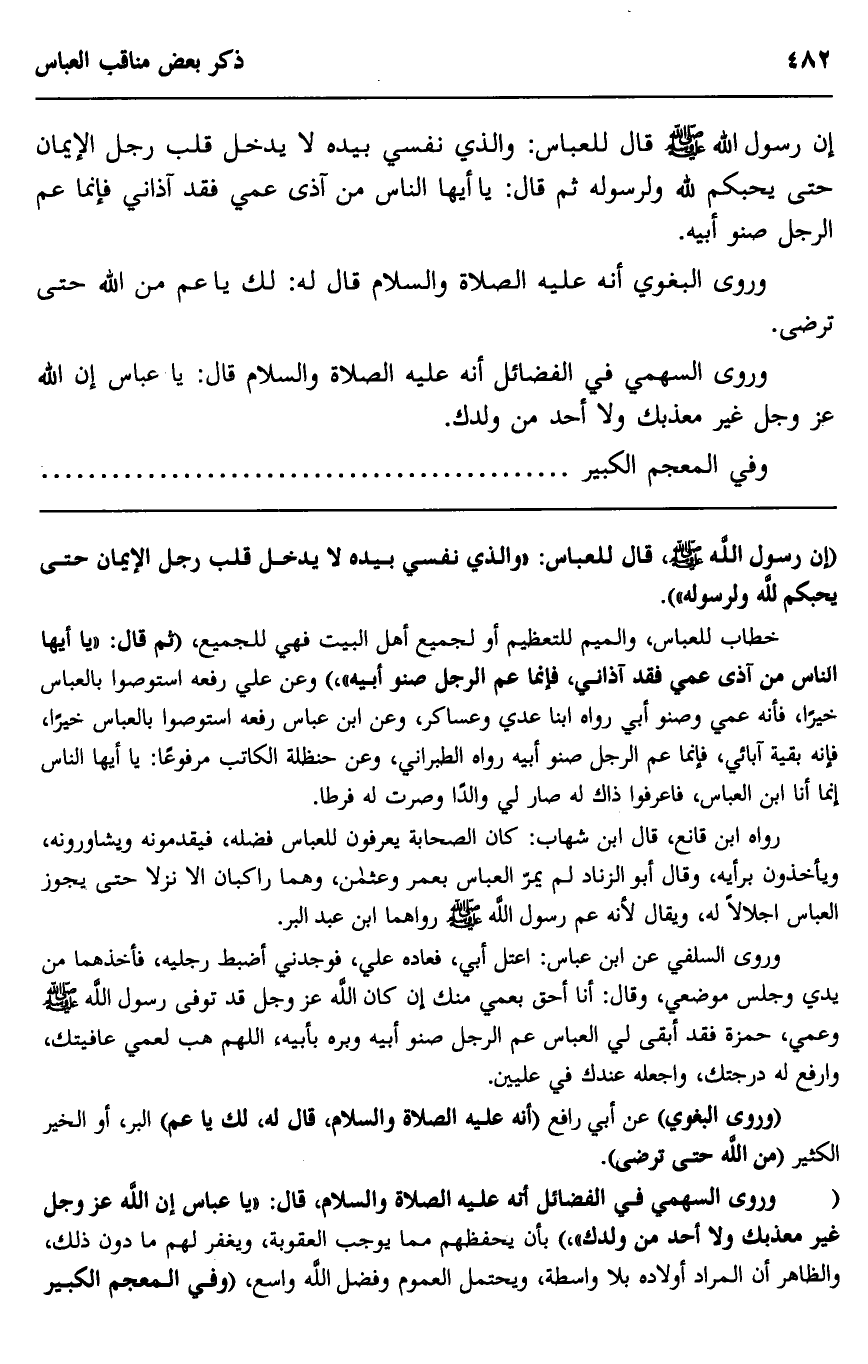 ٤٨٢ ذكر بعض مناقب العباس
إن رسول الله ﷺ قال للعباس: والذي نفسي بيده لا يدخل قلب رجل الإيمان
حتى يحبكم لله ولرسوله ثم قال: يا أيها الناس من آذى عمي فقد آذاني فإنما عم
الرجل صنو أبيه.
وروى البغوي أنه عليه الصلاة والسلام قال له: لك يا عم من الله حتى
ترضى.
وروى السهمي في الفضائل أنه عليه الصلاة والسلام قال: يا عباس إن الله
عز وجل غير معذبك ولا أحد من ولدك.
وفي المعجم الكبير ............................................
(إن رسول اللَّه ﷺ، قال للعباس: «والذي نفسي بيده لا يدخل قلب رجل الإيمان حتى
يحبكم للَّه ولرسوله»).
خطاب للعباس، والميم للتعظيم أو لجميع أهل البيت فهي للجميع، (ثم قال: «يا أيها
الناس من آذى عمي فقد آذاني، فإنما عم الرجل صنو أبيه»،) وعن علي رفعه استوصوا بالعباس
خيرًا، فأنه عمي وصنو أبي رواه ابنا عدي وعساكر، وعن ابن عباس رفعه استوصوا بالعباس خيرًا،
فإنه بقية آبائي، فإنما عم الرجل صنو أبيه رواه الطبراني، وعن حنظلة الكاتب مرفوعًا: يا أيها الناس
إنما أنا ابن العباس، فاعرفوا ذاك له صار لي والدًا وصرت له فرطا.
رواه ابن قانع، قال ابن شهاب: كان الصحابة يعرفون للعباس فضله، فيقدمونه ويشاورونه،
ويأخذون برأيه، وقال أبو الزناد لم يمرّ العباس بعمر وعثمٰن، وهما راكبان الا نزلا حتى يجوز
العباس اجلالاً له، ويقال لأنه عم رسول اللَّه ﷺ رواهما ابن عبد البر.
وروى السلفي عن ابن عباس: اعتل أبي، فعاده علي، فوجدني أضبط رجليه، فأخذهما من
يدي وجلس موضعي، وقال: أنا أحق بعمي منك إن كان اللَّه عز وجل قد توفى رسول اللَّه ﷺ
وعمي، حمزة فقد أبقى لي العباس عم الرجل صنو أبيه وبره بأبيه، اللهم هب لعمي عافيتك،
وارفع له درجتك، واجعله عندك في عليين.
(وروى البغوي) عن أبي رافع (أنه عليه الصلاة والسلام، قال له، لك يا عم) البر، أو الخير
الكثير (من اللَّه حتى ترضى).
( وروى السهمي في الفضائل أنه عليه الصلاة والسلام، قال: «يا عباس إن اللَّه عز وجل
غير معذبك ولا أحد من ولدك»،) بأن يحفظهم مما يوجب العقوبة، ويغفر لهم ما دون ذلك،
والظاهر أن المراد أولاده بلا واسطة، ويحتمل العموم وفضل اللَّه واسع، (وفي المعجم الكبير